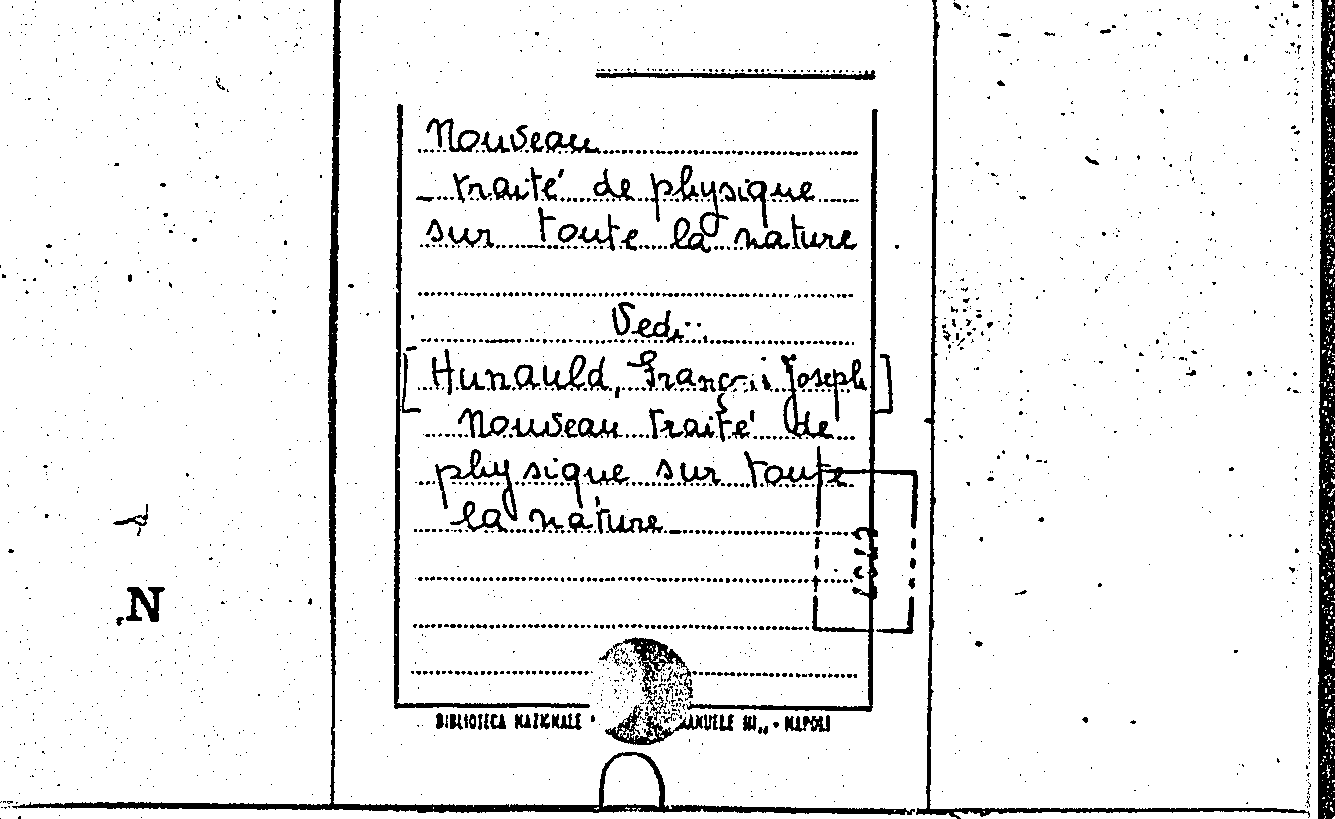 Nouveau
traité de physique
sur toute la nature
Vedi:
[Hunauld, François Joseph]
Nouveau traité de
physique sur toute
la nature
N
BIBLIOTECA NAZIONALE MANUELE III,, - NAPOLI